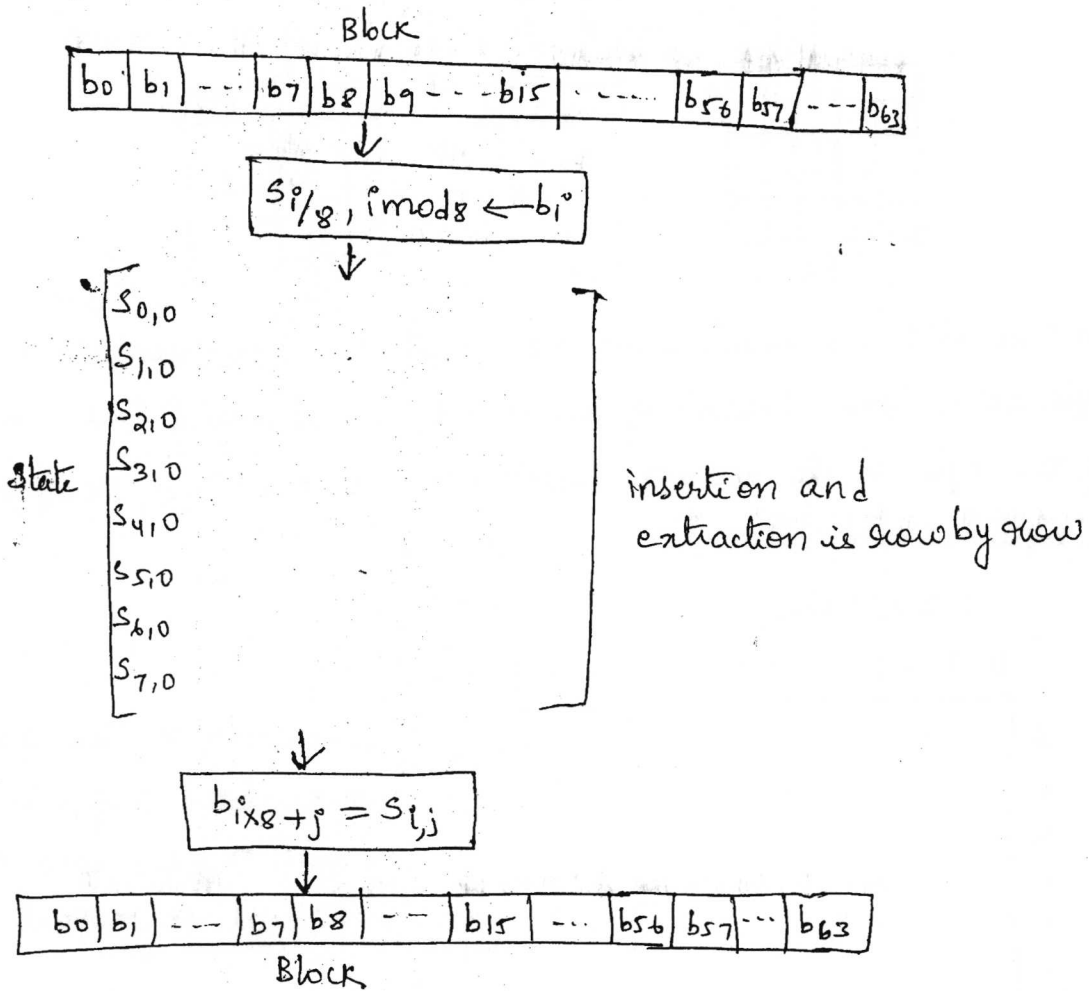 Block
b0 b1 --- b7 b8 b9 --- b15 ----- b56 b57 --- b63
Si/8, i mod 8 ← bi
S0,0
S1,0
S2,0
S3,0
S4,0
S5,0
S6,0
S7,0
State
insertion and
extraction is row by row
bi×8+j = Si,j
b0 b1 --- b7 b8 -- b15 --- b56 b57 --- b63
Block